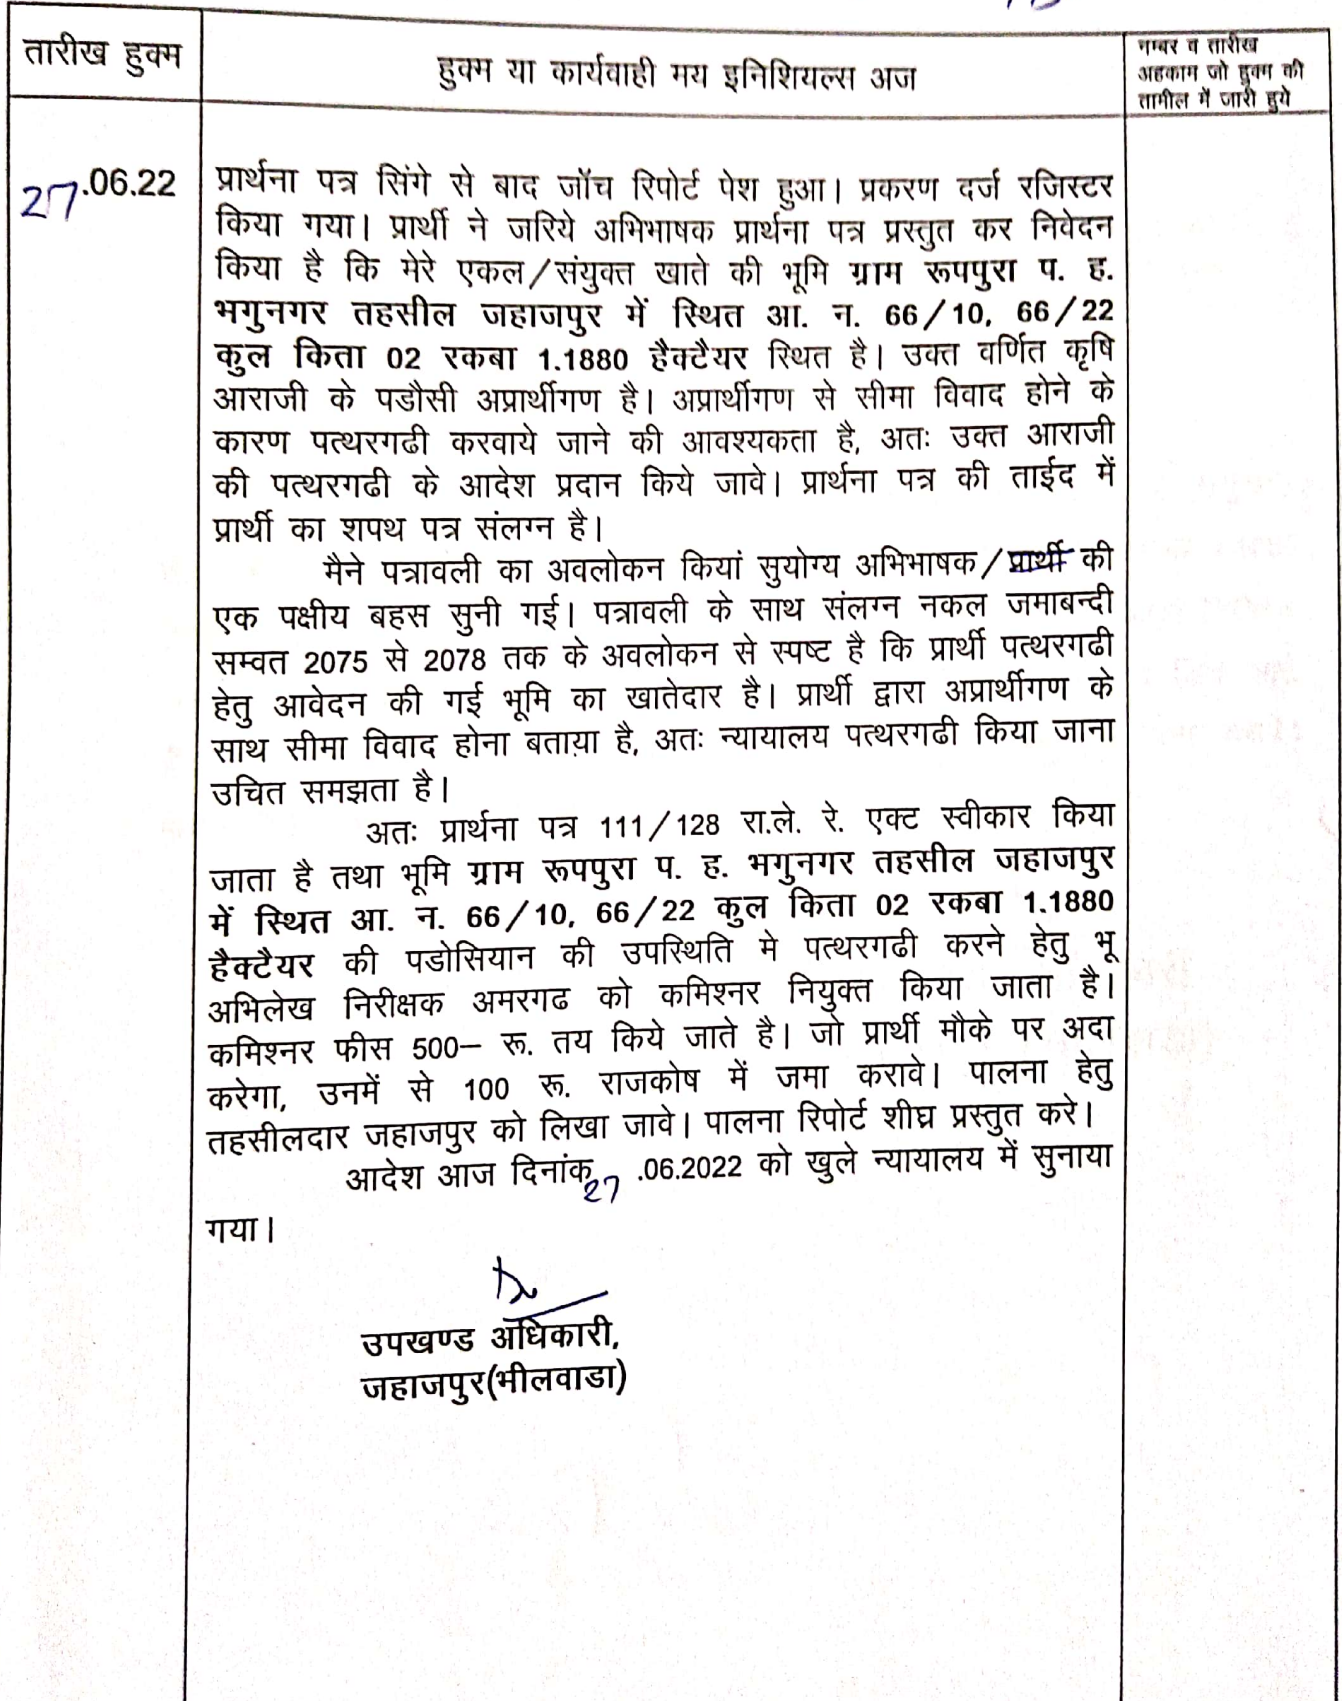 तारीख हुक्म
हुक्म या कार्यवाही मय इनिशियल्स अज
नम्बर व तारीख
अहकाम जो हुक्म की
तामील में जारी हुये
27.06.22
प्रार्थना पत्र सिंगे से बाद जॉच रिपोर्ट पेश हुआ। प्रकरण दर्ज रजिस्टर
किया गया। प्रार्थी ने जरिये अभिभाषक प्रार्थना पत्र प्रस्तुत कर निवेदन
किया है कि मेरे एकल/संयुक्त खाते की भूमि ग्राम रूपपुरा प. ह.
भगुनगर तहसील जहाजपुर में स्थित आ. न. 66/10, 66/22
कुल किता 02 रकबा 1.1880 हैक्टैयर स्थित है। उक्त वर्णित कृषि
आराजी के पडौसी अप्रार्थीगण है। अप्रार्थीगण से सीमा विवाद होने के
कारण पत्थरगढी करवाये जाने की आवश्यकता है, अतः उक्त आराजी
की पत्थरगढी के आदेश प्रदान किये जावे। प्रार्थना पत्र की ताईद में
प्रार्थी का शपथ पत्र संलग्न है।
मैने पत्रावली का अवलोकन कियां सुयोग्य अभिभाषक/प्रार्थी की
एक पक्षीय बहस सुनी गई। पत्रावली के साथ संलग्न नकल जमाबन्दी
सम्वत 2075 से 2078 तक के अवलोकन से स्पष्ट है कि प्रार्थी पत्थरगढी
हेतु आवेदन की गई भूमि का खातेदार है। प्रार्थी द्वारा अप्रार्थीगण के
साथ सीमा विवाद होना बताया़ है, अतः न्यायालय पत्थरगढी किया जाना
उचित समझता है।
अतः प्रार्थना पत्र 111/128 रा.ले. रे. एक्ट स्वीकार किया
जाता है तथा भूमि ग्राम रूपपुरा प. ह. भगुनगर तहसील जहाजपुर
में स्थित आ. न. 66/10, 66/22 कुल किता 02 रकबा 1.1880
हैक्टैयर की पडोसियान की उपस्थिति मे पत्थरगढी करने हेतु भू
अभिलेख निरीक्षक अमरगढ को कमिश्नर नियुक्त किया जाता है।
कमिश्नर फीस 500– रू. तय किये जाते है। जो प्रार्थी मौके पर अदा
करेगा, उनमें से 100 रू. राजकोष में जमा करावे। पालना हेतु
तहसीलदार जहाजपुर को लिखा जावे। पालना रिपोर्ट शीघ्र प्रस्तुत करे।
आदेश आज दिनांक 27 .06.2022 को खुले न्यायालय में सुनाया
गया।
उपखण्ड अधिकारी,
जहाजपुर(भीलवाडा)